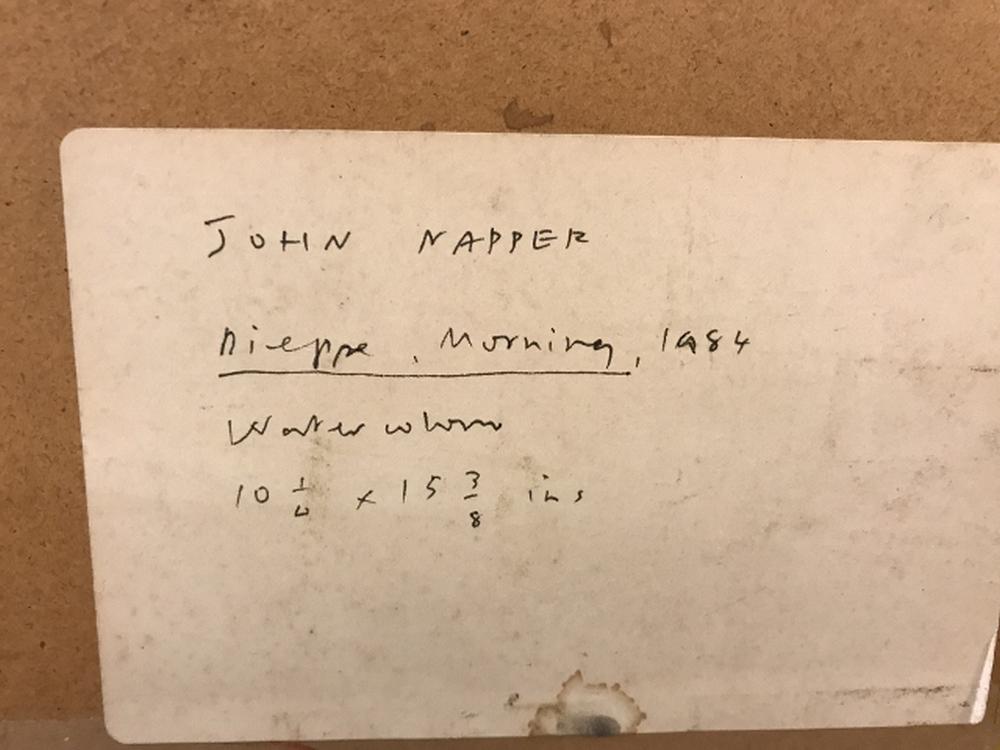 JOHN NAPPER
Dieppe, Morning, 1984
Watercolour
10 1/4 x 15 3/8 ins